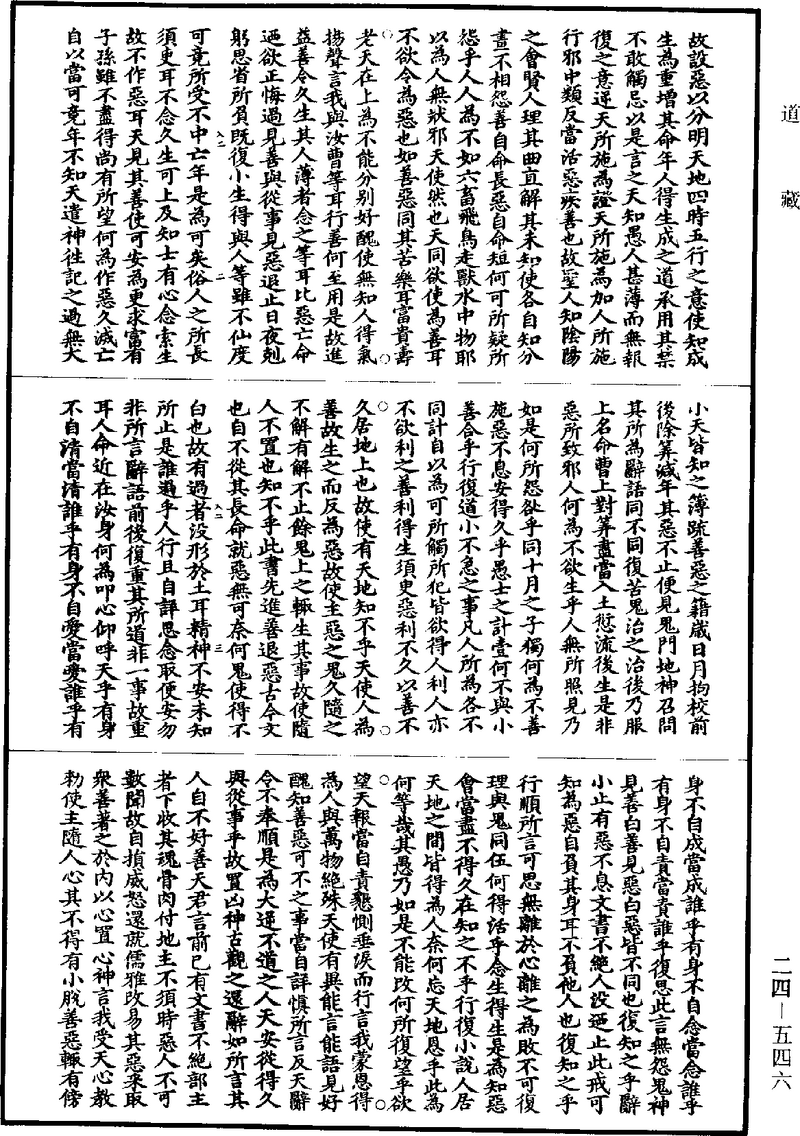 道藏
故設惡以分明天地四時五行之意使知成
生為重增其命年人得生成之道承用其禁
不敢觸忌以是言之天知愚人甚薄而無報
復之意逆天所施為證天所施為加人所施
行邪中類反當活惡疾善也故聖人知陰陽
之會賢人理其曲直解其未知使各自知分
畫不相怨善自命長惡自命短何可所疑所
怨乎人人為不如六畜飛鳥走獸水中物耶
以為人無狀邪天使然也天同欲使為善耳
不欲令為惡也如善惡同其苦樂耳富貴壽
老天在上為不能分別好醜使無知人得氣
揚聲言我與汝曹等耳行善何至用是故進
益善令久生其人薄者念之等耳比惡亡命
迺欲正悔過見善與從事見惡退止日夜剋
躬思省所負既復小生得與人等雖不仙度
可竟所受不中亡年是為可矣俗人之所長
須臾耳不念久生可上及知士有心念索生
故不作惡耳天見其善使可安為更求富有
子孫雖不盡得尚有所望何為作惡久滅亡
自以當可竟年不知天遣神往記之過無大
小天皆知之簿疏善惡之籍歲日月拘校前
後除筭減年其惡不止便見鬼門地神召問
其所為辭語同不同復苦鬼治之治後乃服
上名命曹上對筭盡當入土愆流後生是非
惡所致邪人何為不欲生乎人無所照見乃
如是何所怨欲乎同十月之子獨何為不善
施惡不息安得久乎愚士之計壹何不與小
善合乎行復道小不急之事凡人所為各不
同計自以為可所觸所犯皆欲得人利人亦
不欲利之善利得生須臾惡利不久以善不
久居地上也故使有天地知不乎天使人為
善故生之而反為惡故使主惡之鬼久隨之
不解有解不止餘鬼上之輒生其事故使隨
人不置也知不乎此書先進善退惡古今文
也自不從其長命就惡無可奈何鬼使得不
白也故有過者没形於土耳精神不安未知
所止是誰過乎人行且自詳思念取便安勿
非所言辭語前後復重其所道非一事故重
耳人命近在汝身何為叩心仰呼天乎有身
不自清當清誰乎有身不自愛當愛誰乎有
身不自成當成誰乎有身不自念當念誰乎
有身不自責當責誰乎復思此言無怨鬼神
見善白善見惡白惡皆不同也復知之乎辭
小止有惡不息文書不絶人没迺止此戒可
知為惡自負其身耳不負他人也復知之乎
行順所言可思無離於心離之為敗不可復
理與鬼同伍何得活乎念生得生是為知惡
會當盡不得久在知之不乎行復小說人居
天地之間皆得為人奈何忘天地恩乎此為
何等哉其愚乃如是不能改何所復望乎欲
望天報當自責懇惻垂淚而行言我蒙恩得
為人與萬物絶殊天使有異能言能語見好
醜知善惡可不之事當自詳慎所言反天辭
令不奉順是為大逆不道之人天安從得久
與從事乎故置凶神古觀之還辭如所言其
人自不好善天君言前已有文書不絶部主
者下收其魂骨肉付地主不須時惡人不可
數聞故自損威怒還就儒雅改易其惡采取
衆善著之於内以心置心神言我受天心教
勑使主隨人心其不得有小脫善惡輒有傍
二四—五四六